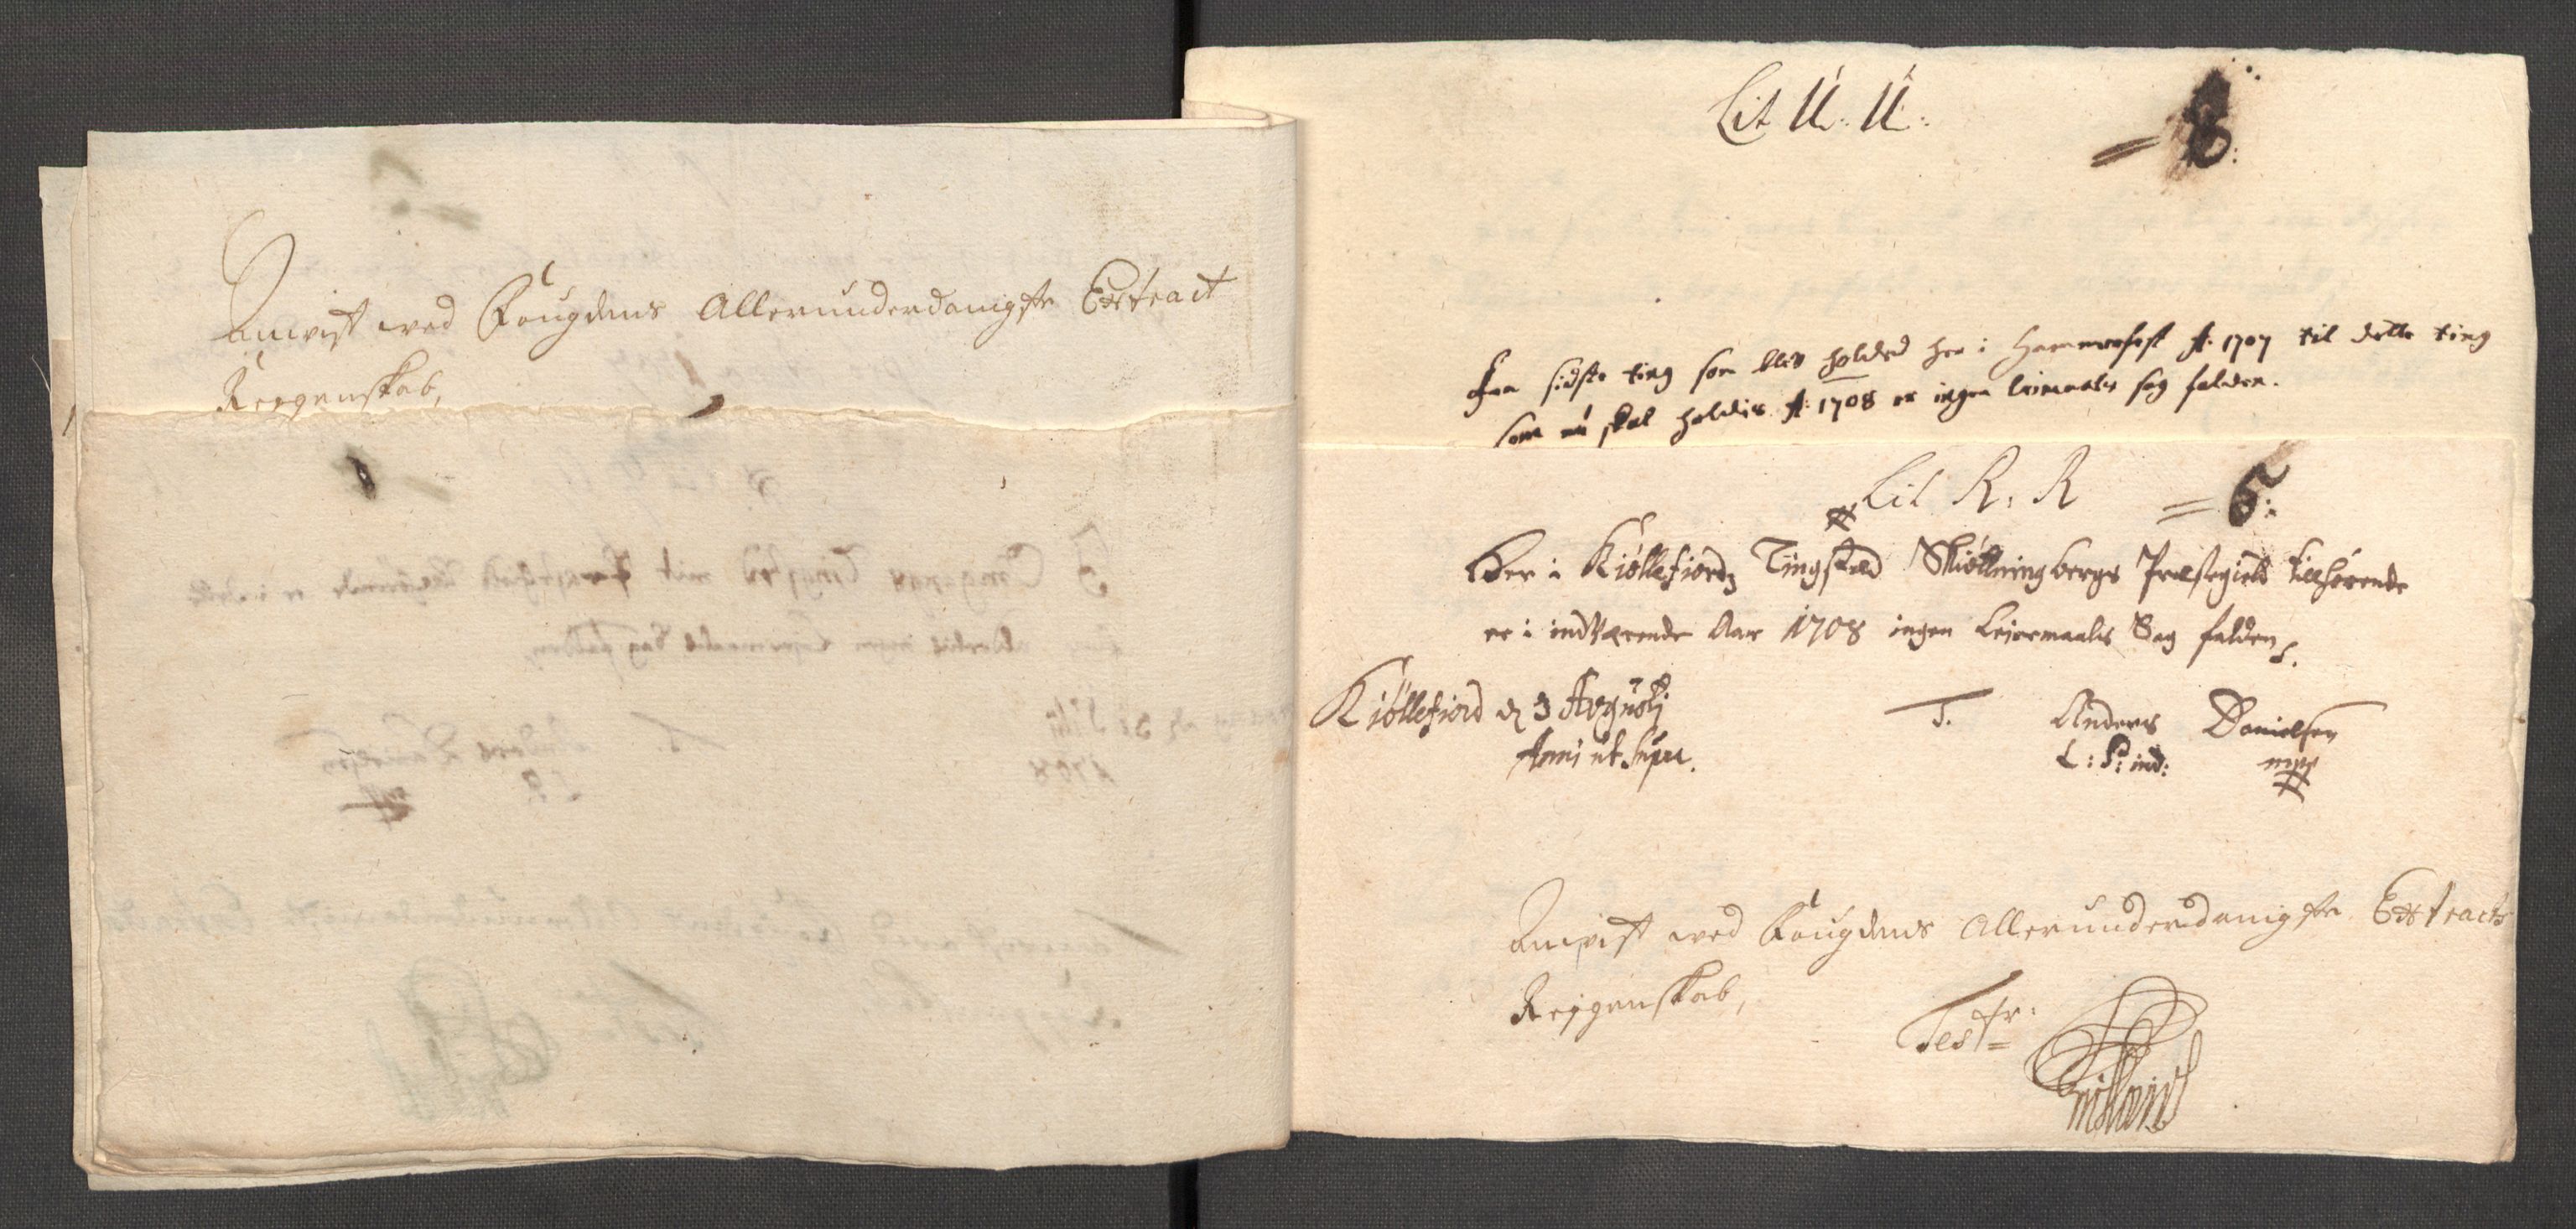 Anvist ved Fougdens Allerunderdanigste Extract
Regenskab,
Lit U: U:
= 8:
Fra sidste ting som blev holded her i Hammerfest A: 1707 til dette ting
som nu skal holdes A: 1708 er ingen leiermaals sag falden.
Lit R: R
= 5:
Her i Kiøllefiord Tingsted Skiøttningbergs Præstegield tillhørende
er i indværende Aar 1708 ingen Leiermaals Sag falden
Kiøllefiord d 3 Augusti
Anni ut supra.
T. Anders Danielsen
L: S: ind: mpp
Anvist ved Fougdens Allerunderdanigste Extracts
Regenskab,
Test